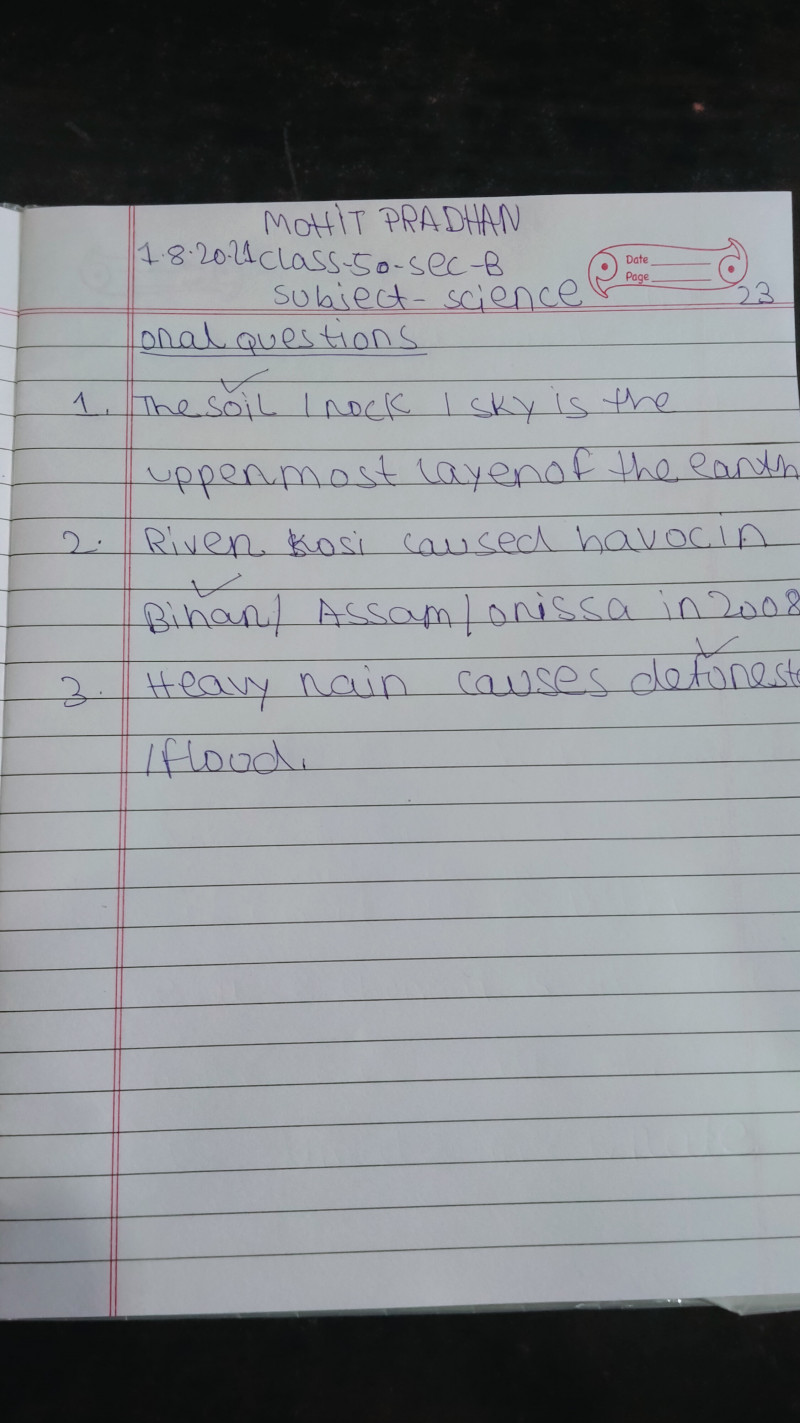 MOHIT PRADHAN
1.8.2021 class-50-sec-B
Date
Page
subject - science
23
oral questions
1. The soil / rock / sky is the
uppermost layer of the earth
2. River Kosi caused havoc in
Bihar / Assam / orissa in 2008
3. Heavy rain causes deforest
/ flood.